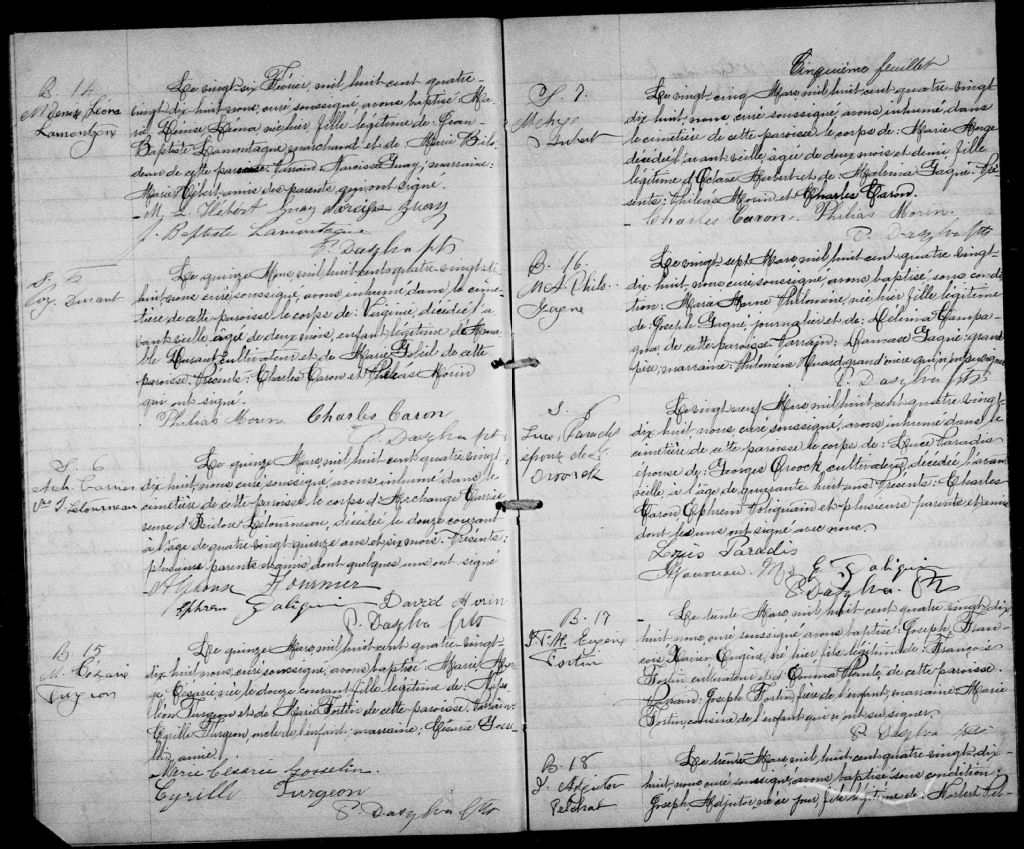 B. 14
M. Démise Léona
Lamontagne
Le vingt-six Février, mil huit cent quatre-
vingt dix huit, nous, curé soussigné, avons baptisé Ma-
rie Démise Léona née hier fille légitime de Jean
Baptiste Lamontagne marchand et de Marie Bilo-
deau de cette paroisse. Parrain Narcisse Guay, marraine:
Marie Hébert amis des parents, qui ont signé.
M. L. Hébert Guay Narcisse Guay
J. Baptiste Lamontagne
P. Dasylva ptr
S. 5
Le quinze Mars, mil huit cent quatre vingt-dix
huit, nous curé soussigné, avons inhumé dans le cime-
tière de cette paroisse le corps de: Virginie, décédée l'a
vant veille âgée de deux mois, enfant légitime de
cultivateur et de Marie Gobeil de cette
paroisse. Présents: Charles Caron et Philéas Morin
qui ont signé.
Philias Morin Charles Caron
P. Dasylva ptr
S. 6
Arch. Carrier
Vve I. Létourneau
Le quinze Mars, mil huit cent quatre vingt-
dix huit, nous, curé soussigné, avons inhumé dans le
cimetière de cette paroisse le corps d'Archange Carrier
veuve d'Isidore Létourneau, décédée le douze courant
à l'âge de quatre vingt quinze ans et six mois. Présents:
plusieurs parents et amis, dont quelques uns ont signé
Alphonse Fournier
Ephrem Galiguin David Morin
P. Dasylva ptr
B. 15
M. Césarie
Turgeon
Le quinze Mars, mil huit cent quatre vingt-
dix huit, nous, curé soussigné, avons baptisé Marie
Césarie née le douze courant fille légitime de: Napo-
léon Turgeon et de Marie Fortin de cette paroisse. Parrain:
Cyrille Turgeon, oncle de l'enfant, marraine: Césarie Gosse-
lin, amie.
Marie Césarie Gosselin.
Cyrille Turgeon
P. Dasylva ptr
Cinquième feuillet
S. 7.
Hubert
Le vingt-cinq Mars, mil huit cent quatre vingt
dix huit, nous, curé soussigné, avons, inhumé dans
le cimetière de cette paroisse le corps de: Marie
décédée l'avant veille, âgée de deux mois et demi, fille
légitime d'Octave Hubert et de Malvina Gagné. Pré-
sents: Philéas Morin et Charles Caron.
Charles Caron. Philias Morin.
P. Dasylva ptr
B. 16.
M. A. Philo.
Gagné
Le vingt sept Mars, mil huit cent quatre vingt-
dix huit, nous, curé soussigné, avons, baptisé, sous condi-
tion: Marie Philomène, née hier fille légitime
de Joseph Gagné, journalier et de: Délima Campa-
gna, de cette paroisse. Parrain: Damase Gagné grand-
père, marraine: Philomène Huard grand'mère qui n'ont pu signer
P. Dasylva ptr
S. 8
Luce Paradis
épouse de G.
Le vingt neuf Mars, mil huit cent quatre vingt-
dix huit, nous, curé soussigné, avons, inhumé dans le
cimetière de cette paroisse, le corps de: Luce Paradis
épouse de: Georges cultivateur, décédée l'avant
veille, à l'âge de quarante huit ans. Présents: Charles
Caron Ephrem et plusieurs parents et amis
dont les uns ont signé avec nous.
Louis Paradis
E. Galiguin
P. Dasylva. Ptr
B. 17
J. F. X. Eugène
Fortin
Le trente Mars, mil huit cent quatre vingt dix
huit, nous, curé soussigné, avons baptisé: Joseph Fran-
cois Xavier Eugène, né hier, fils légitime de François
Fortin cultivateur et d'Emma Plante de cette paroisse.
Parrain: Joseph Fortin, frère de l'enfant, marraine: Marie
Fortin, cousine de l'enfant qui n'ont su signer.
P. Dasylva ptr
B. 18
J. Adjutor
Pelchat
Le trente Mars, mil huit cent quatre vingt dix-
huit, nous, curé soussigné, avons, baptisé sous condition:
Joseph, Adjutor, né ce jour, fils légitime de: Norbert Pel-